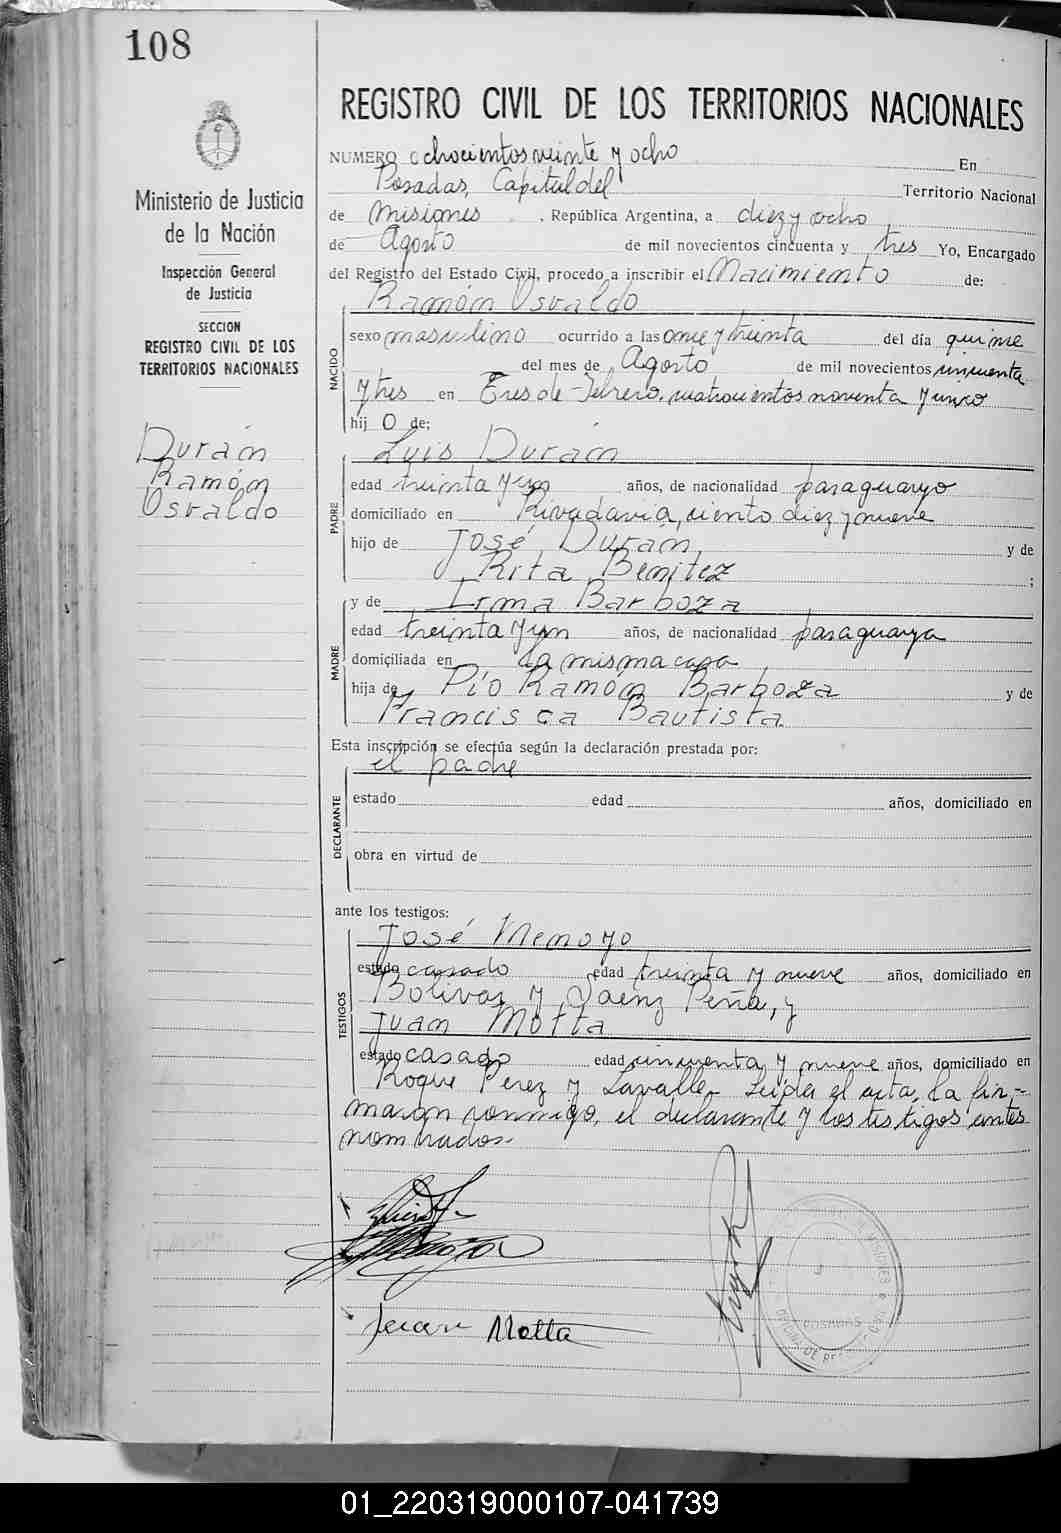 108
REGISTRO CIVIL DE LOS TERRITORIOS NACIONALES
Ministerio de Justicia
de la Nación
Inspección General
de Justicia
SECCION
REGISTRO CIVIL DE LOS
TERRITORIOS NACIONALES
Durán
Ramón
Osvaldo
NUMERO ochocientos veinte y ocho En
Posadas, Capital del Territorio Nacional
de Misiones, República Argentina, a diez y ocho
de Agosto de mil novecientos cincuenta y tres Yo, Encargado
del Registro del Estado Civil, procedo a inscribir el Nacimiento de:
Ramón Osvaldo
NACIDO
sexo masculino ocurrido a las once y treinta del día quince
del mes de Agosto de mil novecientos cincuenta
y tres en Tres de Febrero, cuatrocientos noventa y cinco
hij o de;
Luis Durán
PADRE
edad treinta y un años, de nacionalidad paraguayo
domiciliado en Rivadavia, ciento diez y nueve
hijo de José Durán y de
Rita Benitez ;
y de Irma Barboza
MADRE
edad treinta y un años, de nacionalidad paraguaya
domiciliada en la misma casa
hija de Pío Ramón Barboza y de
Francisca Bautista
Esta inscripción se efectúa según la declaración prestada por:
el padre
DECLARANTE
estado edad años, domiciliado en
obra en virtud de
ante los testigos:
José Menoyo
TESTIGOS
estado casado edad treinta y nueve años, domiciliado en
Bolivar y Saenz Peña, y
Juan Motta
estado casado edad cincuenta y nueve años, domiciliado en
Roque Perez y Lavalle- Leida el acta, la fir-
maron conmigo, el declarante y los testigos antes
nombrados-
Juan Motta
POSADAS
01_220319000107-041739